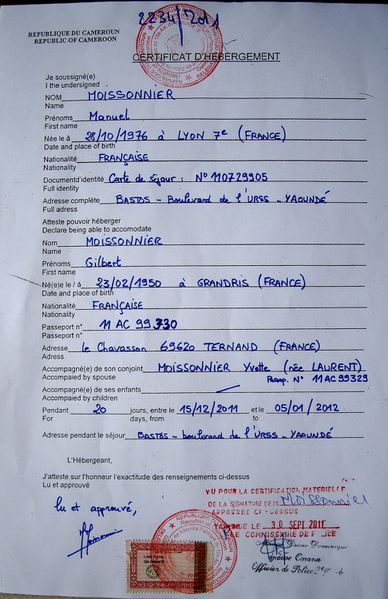 2234/2011
REPUBLIQUE DU CAMEROUN
REPUBLIC OF CAMEROON
CERTIFICAT D'HÉBERGEMENT
Je soussigné(e)
I the undersigned
NOM MOISSONNIER
Name
Prénoms Manuel
First name
Née le à 28/10/1976 à LYON 7e (FRANCE)
Date and place of birth
Nationalité FRANÇAISE
Nationality
Documentd'identité Carte de séjour : N° 110729905
Full identity
Adresse complète BASTOS - Boulevard de l'URSS - YAOUNDÉ
Full adress
Atteste pouvoir héberger
Declare being able to accomodate
Nom MOISSONNIER
Name
Prénoms Gilbert
First name
Né(e) le / à 23/02/1950 à GRANDRIS (FRANCE)
Date and place of birth
Nationalité FRANÇAISE
Nationality
Passeport n° 11 AC 99330
Passport n°
Adresse le Chavasson 69620 TERNAND (FRANCE)
Adress
Accompagné(e) de son conjoint MOISSONNIER Yvette (née LAURENT)
Accompanied by spouse Passp. N° 11AC99329
Accompagné(e) de ses enfants
Accompanied by children
Pendant 20 jours, entre le 15/12/2011 et le 05/01/2012
For days, from to
Adresse pendant le séjour BASTOS - boulevard de l'URSS - YAOUNDÉ
L'Hébergeant,
J'atteste sur l'honneur l'exactitude des renseignements ci-dessus
Lu et approuvé
Lu et approuvé,
VU POUR LA CERTIFICATION MATERIELLE
DE LA SIGNATURE DE M Moissonnier
APPOSEE CI-DESSUS
YAOUNDE LE 30 SEPT 2011
LE COMMISSAIRE DE POLICE
Officier de Police